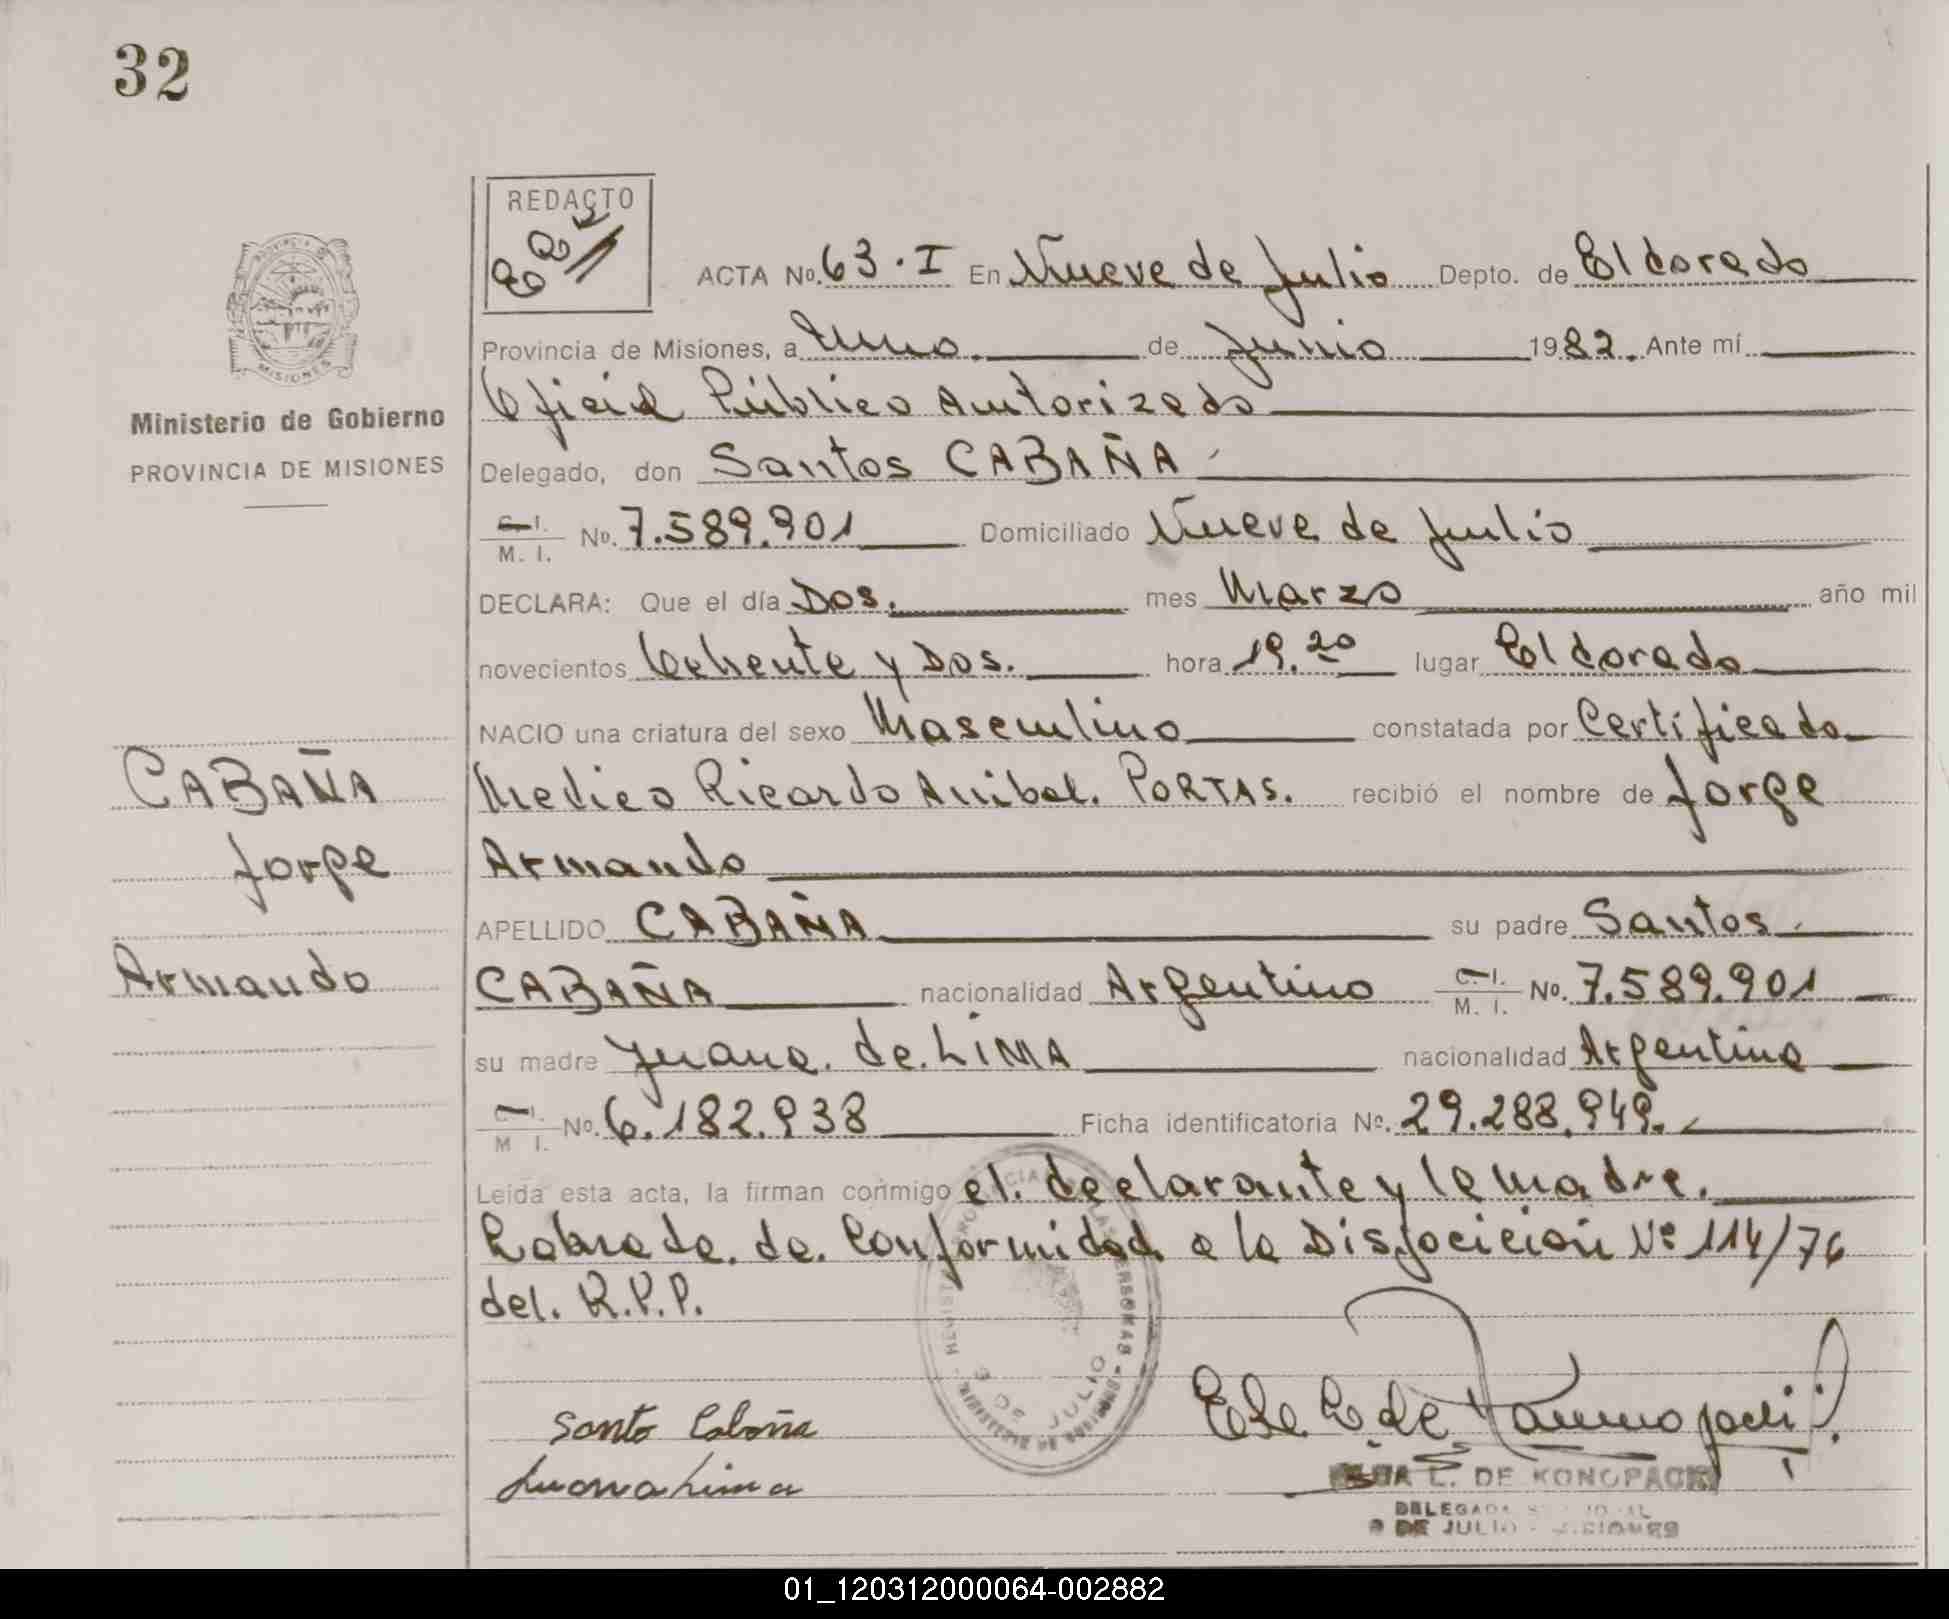 32
REDACTO
ACTA No. 63·I En Nueve de Julio Depto. de Eldorado
Provincia de Misiones, a Uno. de Junio 1982. Ante mí
Oficial Público Autorizado
Delegado, don Santos CABAÑA
C. I. / M. I. No. 7.589.901 Domiciliado Nueve de Julio
DECLARA: Que el día Dos. mes Marzo año mil
novecientos Ochenta y Dos. hora 19.20 lugar Eldorado
NACIO una criatura del sexo Masculino constatada por Certificado
Medico Ricardo Anibal. PORTAS. recibió el nombre de Jorge
Armando
APELLIDO CABAÑA su padre Santos
CABAÑA nacionalidad Argentino C. I. / M. I. No. 7.589.901
su madre Juana. de. LIMA nacionalidad Argentina
C. I. / M I. No. 6.182.938 Ficha identificatoria No. 29.288.949.
Leída esta acta, la firman conmigo el. declarante y la madre.
Labrada. de. Conformidad a la Disposición Nº 114/76
del. R.P.P.
Santo Cabaña
Juana Lima
L. DE KONOPACKI
DELEGADA
9 DE JULIO - MISIONES
PROVINCIA DE MISIONES
Ministerio de Gobierno
PROVINCIA DE MISIONES
CABAÑA
Jorge
Armando
9 DE JULIO
01_120312000064-002882